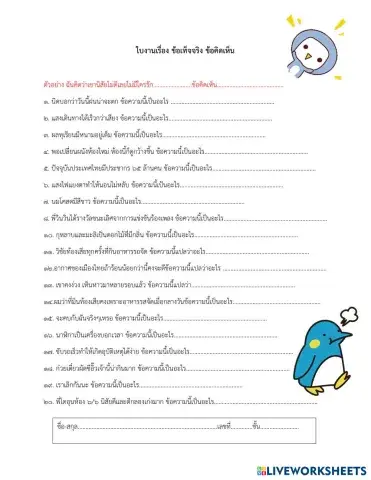 ใบงานเรื่อง ข้อเท็จจริง ข้อคิดเห็น
ตัวอย่าง ฉันคิดว่าเขานิสัยไม่ดีเลยไม่มีใครรัก....................ข้อคิดเห็น....................
๑. นิดบอกว่าวันนี้ฝนน่าจะตก ข้อความนี้เป็นอะไร ....................
๒. แสงเดินทางได้เร็วกว่าเสียง ข้อความนี้เป็นอะไร....................
๓. ผลทุเรียนมีหนามอยู่เต็ม ข้อความนี้เป็นอะไร....................
๔. พอเปลี่ยนผนังห้องใหม่ ห้องนี้ก็ดูกว้างขึ้น ข้อความนี้เป็นอะไร....................
๕. ปัจจุบันประเทศไทยมีประชากร ๖๕ ล้านคน ข้อความนี้เป็นอะไร....................
๖. แสงไฟแยงตาทำให้นอนไม่หลับ ข้อความนี้เป็นอะไร....................
๗. นมโคสดมีสีขาว ข้อความนี้เป็นอะไร....................
๘. พี่วินวินได้รางวัลชนะเลิศจากการแข่งขันร้องเพลง ข้อความนี้เป็นอะไร....................
๑๐. กุหลาบและมะลิเป็นดอกไม้ที่มีกลิ่น ข้อความนี้เป็นอะไร....................
๑๑. วิชัยท้องเสียทุกครั้งที่กินอาหารรสจัด ข้อความนี้แปลว่าอะไร....................
๑๒.อากาศของเมืองไทยถ้าร้อนน้อยกว่านี้คงจะดีข้อความนี้แปลว่าอะไร ....................
๑๓. เขาคงง่วง เห็นหาวมาหลายรอบแล้ว ข้อความนี้แปลว่า....................
๑๔.ผมว่าที่ฉันท้องเสียคงเพราะอาหารรสจัดเมื่อกลางวันข้อความนี้เป็นอะไร....................
๑๕. จะคบกับฉันจริงๆเหรอ ข้อความนี้เป็นอะไร....................
๑๖. นาฬิกาเป็นเครื่องบอกเวลา ข้อความนี้เป็นอะไร....................
๑๗. ขับรถเร็วทำให้เกิดอุบัติเหตุได้ง่าย ข้อความนี้เป็นอะไร....................
๑๘. ก๋วยเตี๋ยวผัดซีอิ๊วเจ้านี้น่ากินมาก ข้อความนี้เป็นอะไร....................
๑๙. เราเลิกกันนะ ข้อความนี้เป็นอะไร....................
๒๐. พี่ไตอุนห้อง ๖/๖ นิสัยดีและตีกลองเก่งมาก ข้อความนี้เป็นอะไร....................
ชื่อ-สกุล....................เลขที่..........ชั้น..........
LIVEWORKSHEETS